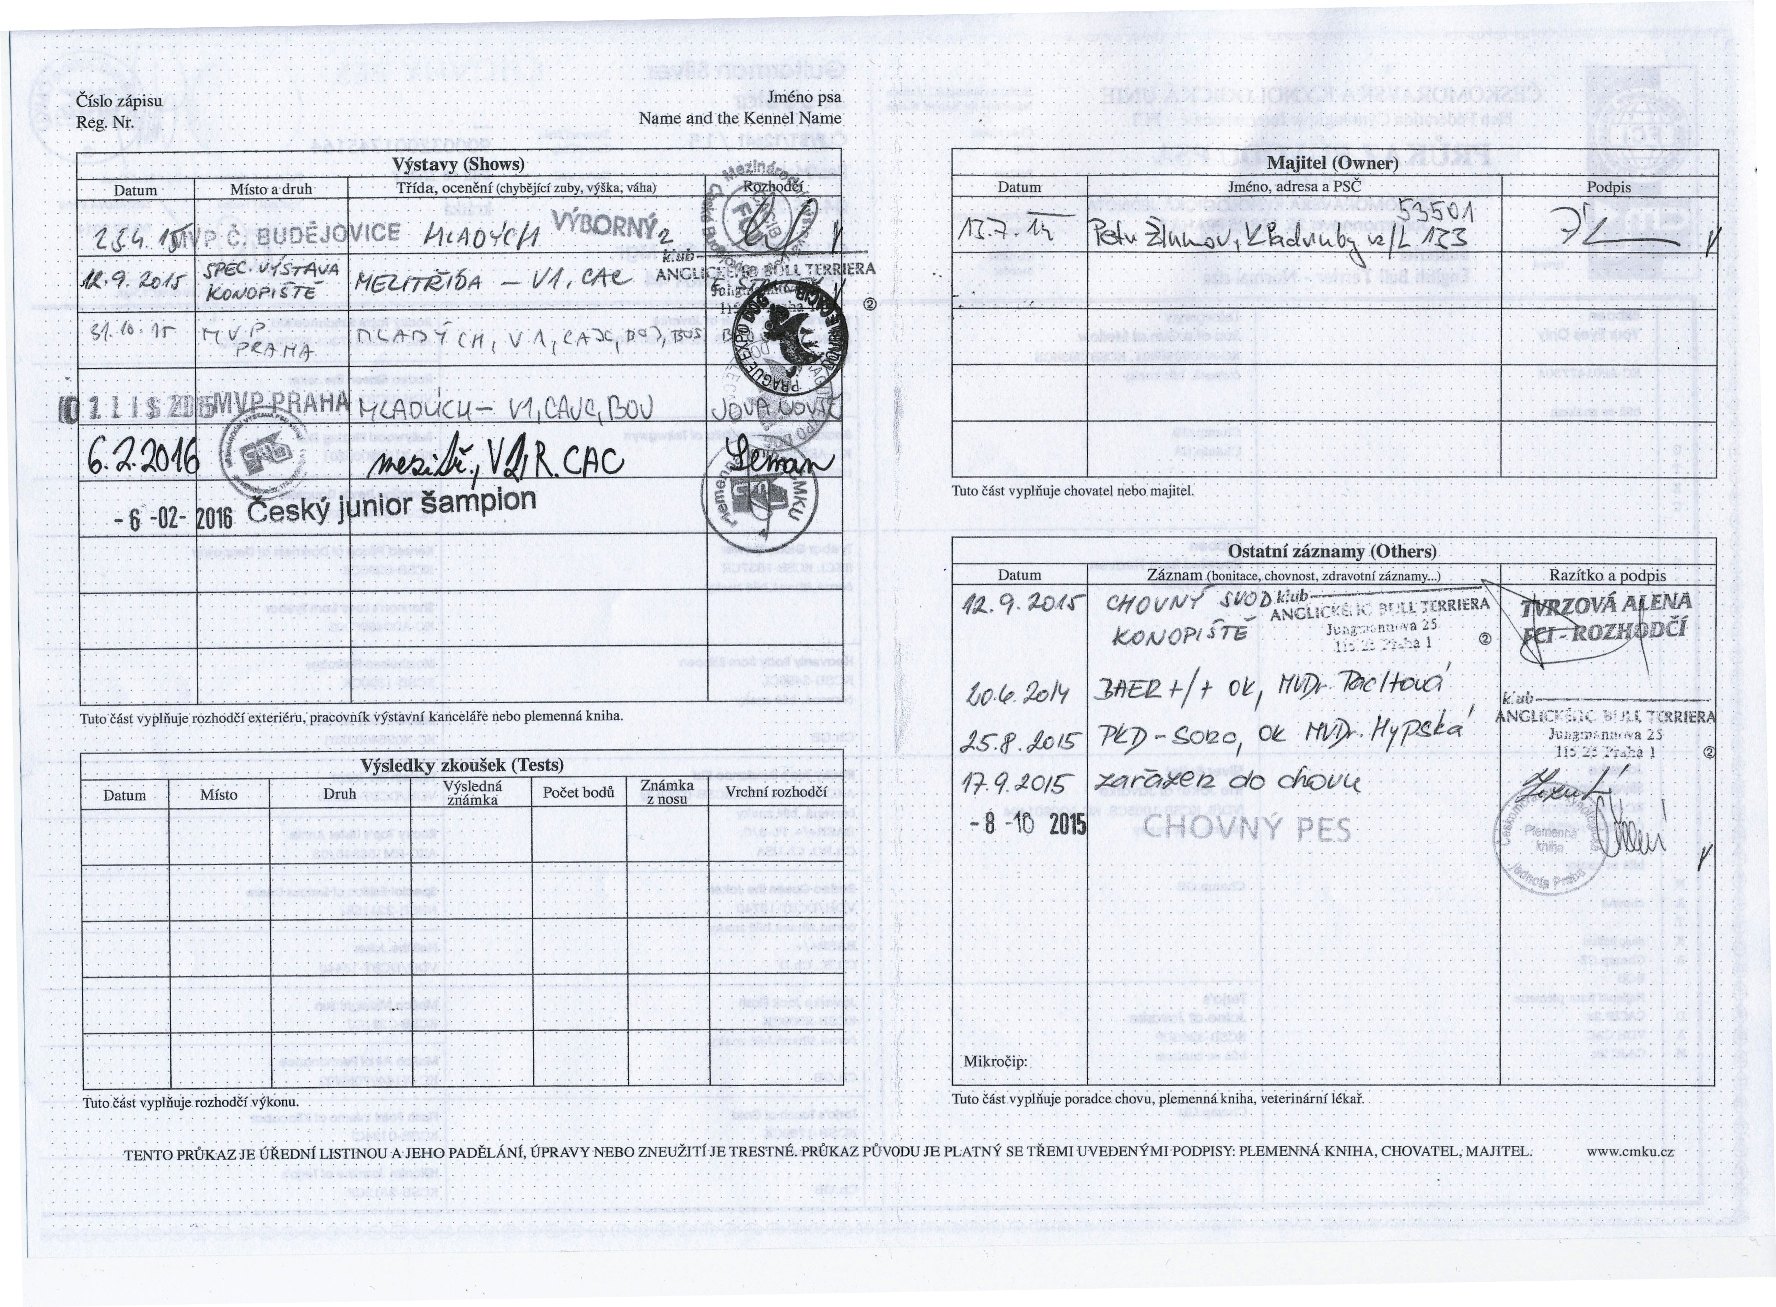 Číslo zápisu
Reg. Nr.
Jméno psa
Name and the Kennel Name
Výstavy (Shows)
Datum Místo a druh Třída, ocenění (chybějící zuby, výška, váha) Rozhodčí
25.4.15 MVP Č. BUDĚJOVICE MLADÝCH VÝBORNÝ 2
klub
ANGLICKÉHO BULL TERRIERA
12.9.2015 SPEC. VÝSTAVA KONOPIŠTĚ MEZITŘÍDA – V1, CAC
31.10.15 MVP PRAHA MLADÝCH, V1, CAJC, BOJ, BOS
PRAGUE EXPO DOG
01 LIS 2015 MVP PRAHA MLADÝCH – V1, CAJC, BOJ
6.2.2016 mezitř., V2, R. CAC Leman
-6 -02- 2016 Český junior šampion
ČMKU
Tuto část vyplňuje rozhodčí exteriéru, pracovník výstavní kanceláře nebo plemenná kniha.
Výsledky zkoušek (Tests)
Datum Místo Druh Výsledná známka Počet bodů Známka z nosu Vrchní rozhodčí
Tuto část vyplňuje rozhodčí výkonu.
Majitel (Owner)
Datum Jméno, adresa a PSČ Podpis
53501
13.7.14 Petr 133
Tuto část vyplňuje chovatel nebo majitel.
Ostatní záznamy (Others)
Datum Záznam (bonitace, chovnost, zdravotní záznamy...) Razítko a podpis
12.9.2015 CHOVNÝ SVOD
KONOPIŠTĚ
klub
ANGLICKÉHO BULL TERRIERA
Jungmannova 25
115 25 Praha 1
②
TVRZOVÁ ALENA
FCI - ROZHODČÍ
20.6.2014 BAER +/+ OK, MVDr. Pachtová
25.8.2015 PKD – SONO, OK MVDr. Hypská
klub
ANGLICKÉHO BULL TERRIERA
Jungmannova 25
115 25 Praha 1
②
17.9.2015 zařazen do chovu
-8 -10 2015 CHOVNÝ PES
Plemenná
kniha
Jednota Praha
Mikročip:
Tuto část vyplňuje poradce chovu, plemenná kniha, veterinární lékař.
TENTO PRŮKAZ JE ÚŘEDNÍ LISTINOU A JEHO PADĚLÁNÍ, ÚPRAVY NEBO ZNEUŽITÍ JE TRESTNÉ. PRŮKAZ PŮVODU JE PLATNÝ SE TŘEMI UVEDENÝMI PODPISY: PLEMENNÁ KNIHA, CHOVATEL, MAJITEL. www.cmku.cz